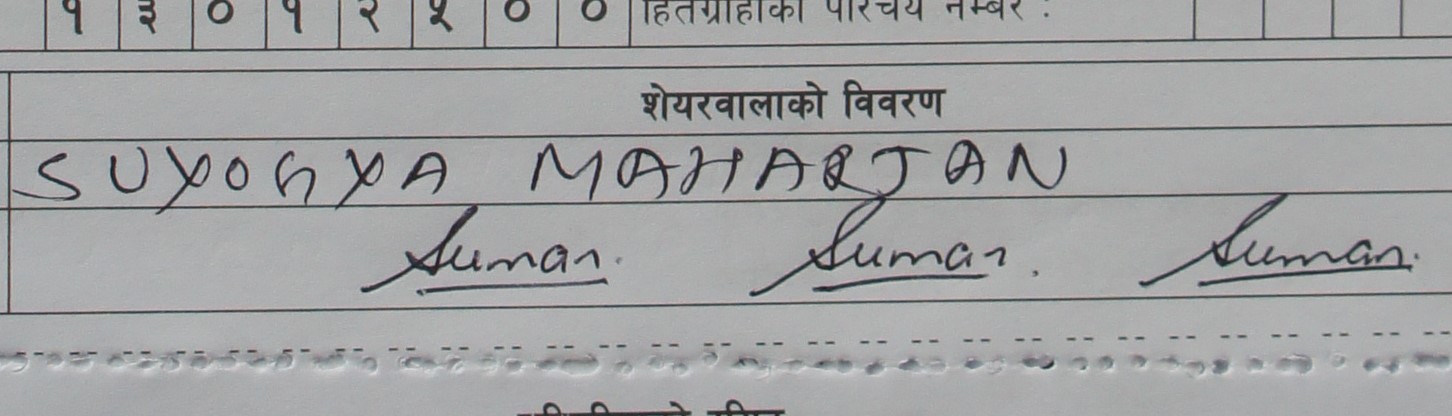 १ ३ ० १ २ ५ ० ० हितग्राहीको परिचय नम्बर :
शेयरवालाको विवरण
SUYOGYA MAHARJAN
Suman. Suman. Suman.